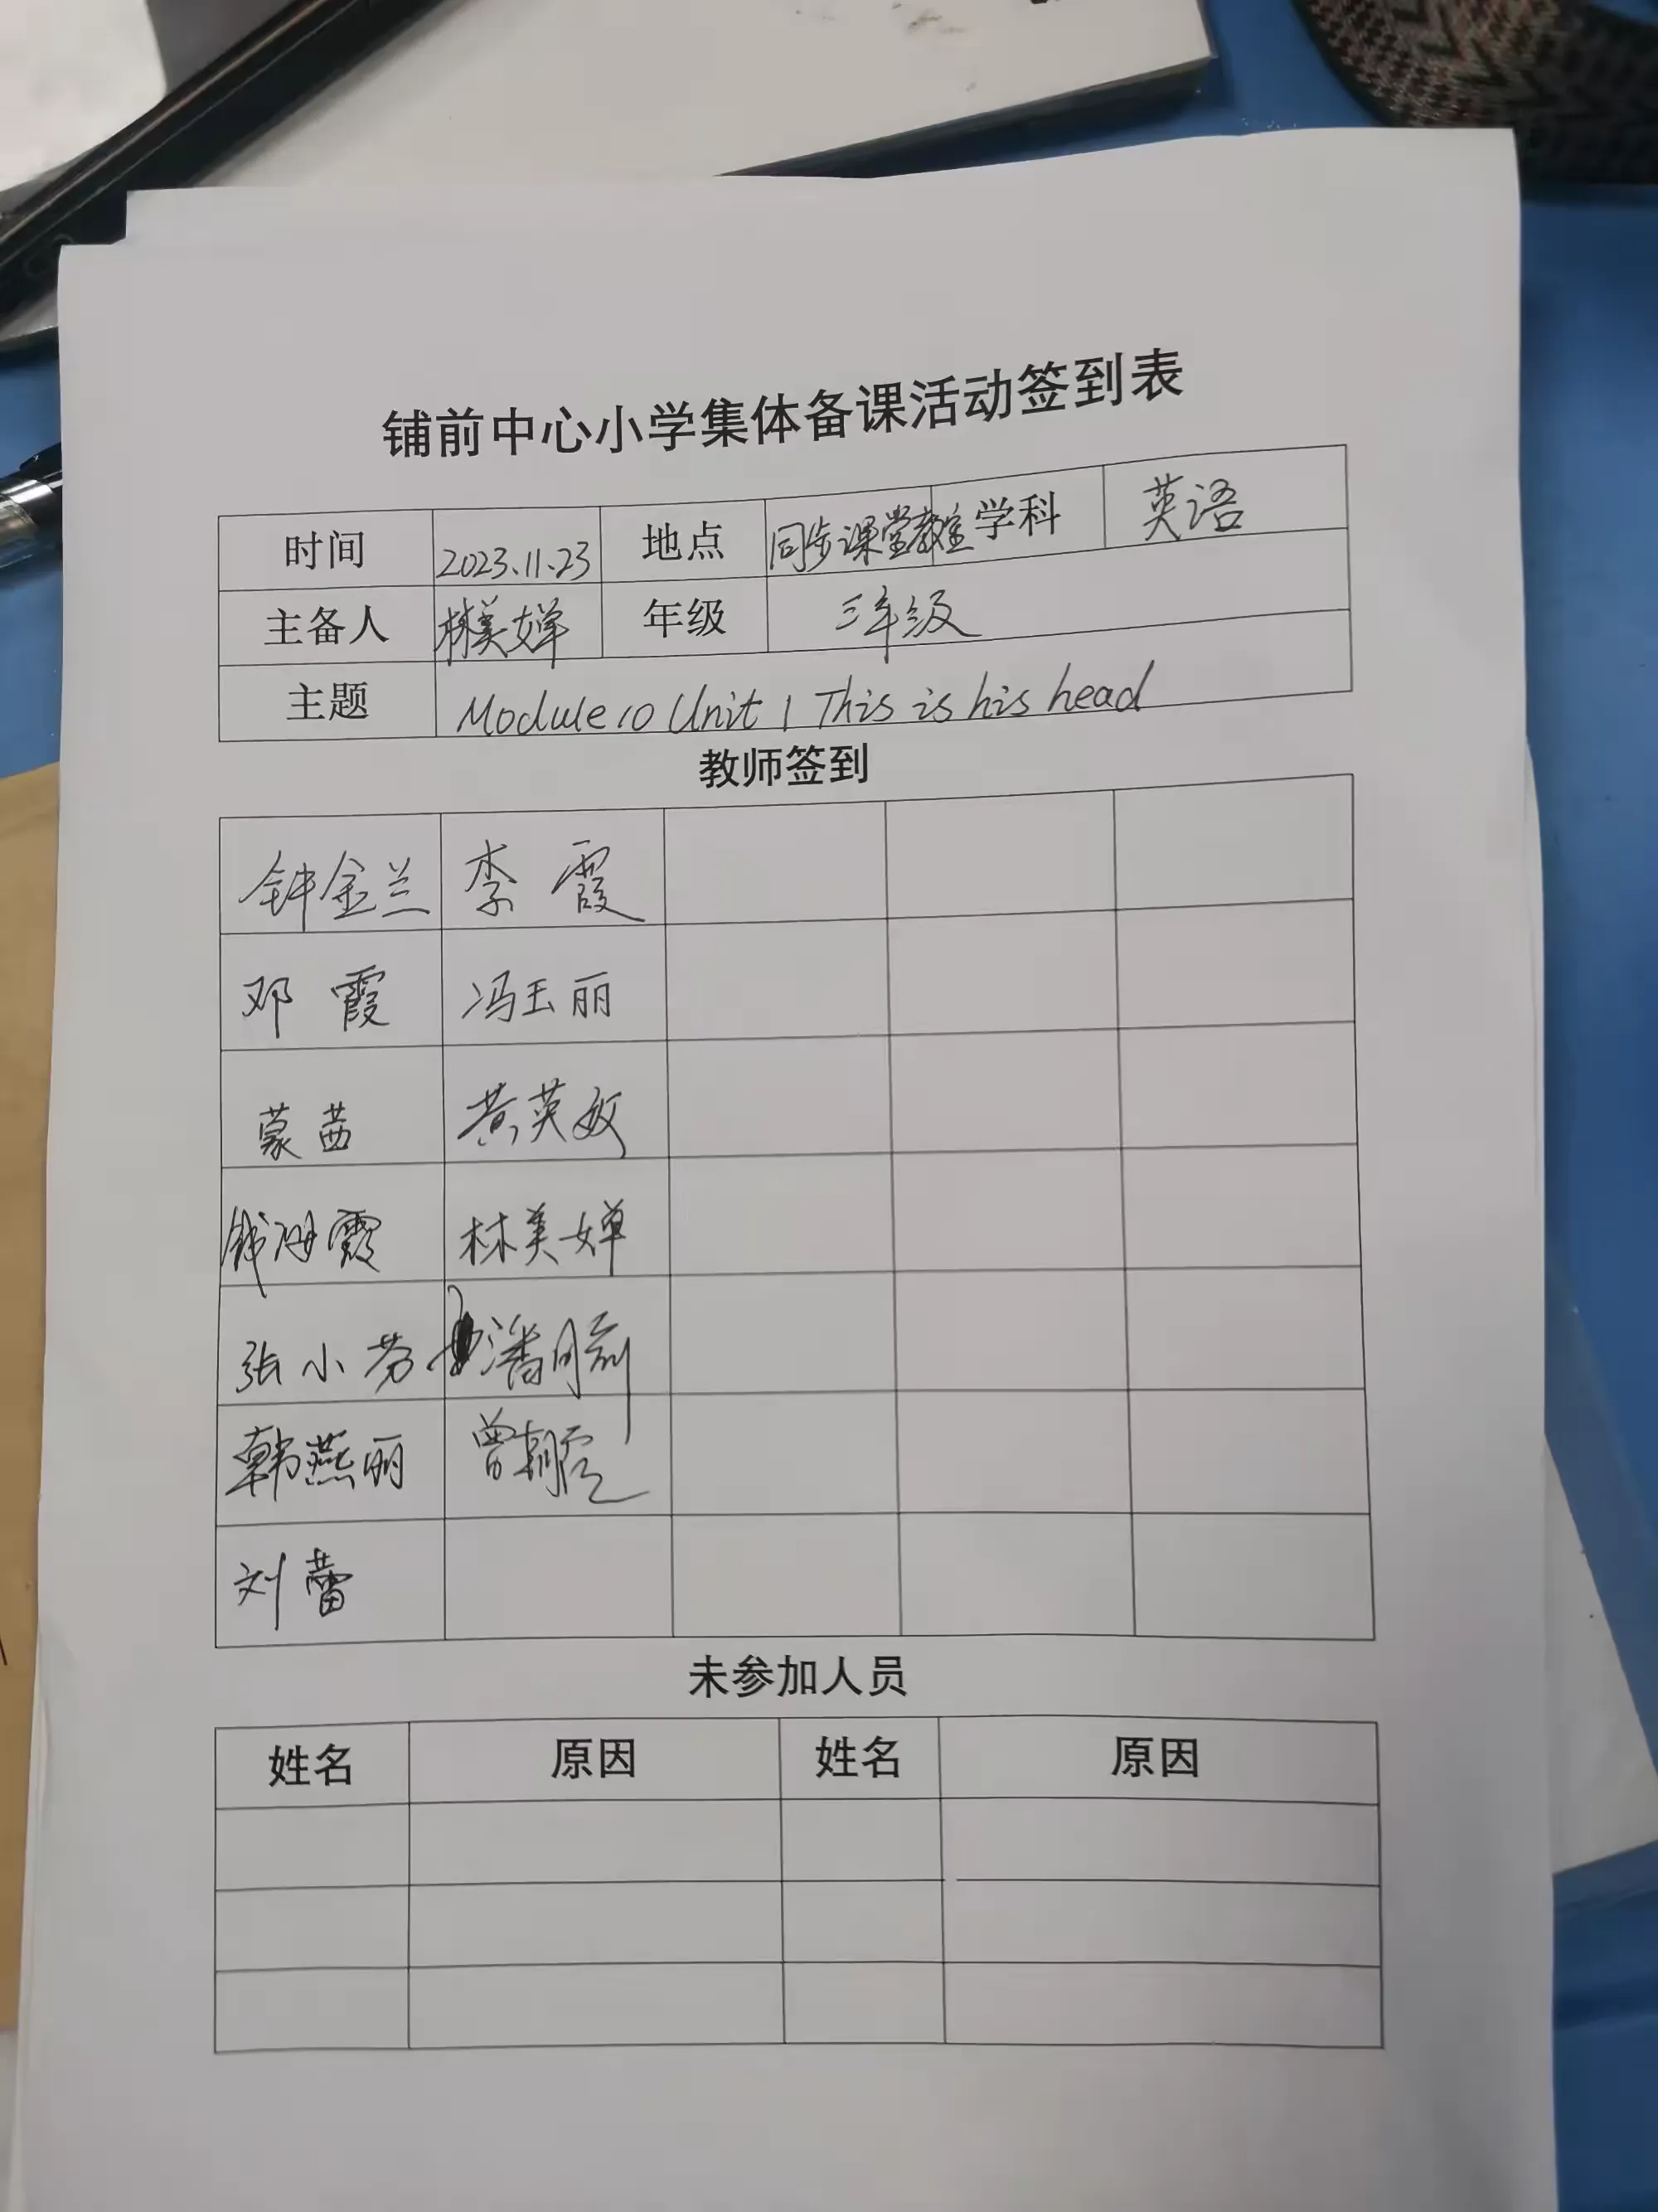 铺前中心小学集体备课活动签到表
时间 2023.11.23 地点 同步课堂教室 学科 英语
主备人 林美婵 年级 三年级
主题 Module 10 Unit 1 This is his head
教师签到
钟金兰 李霞
邓霞 冯玉丽
蒙茜 黄英敏
钱海霞 林美婵
张小芳 潘
韩燕丽 曾朝霞
刘蕾
未参加人员
姓名 原因 姓名 原因